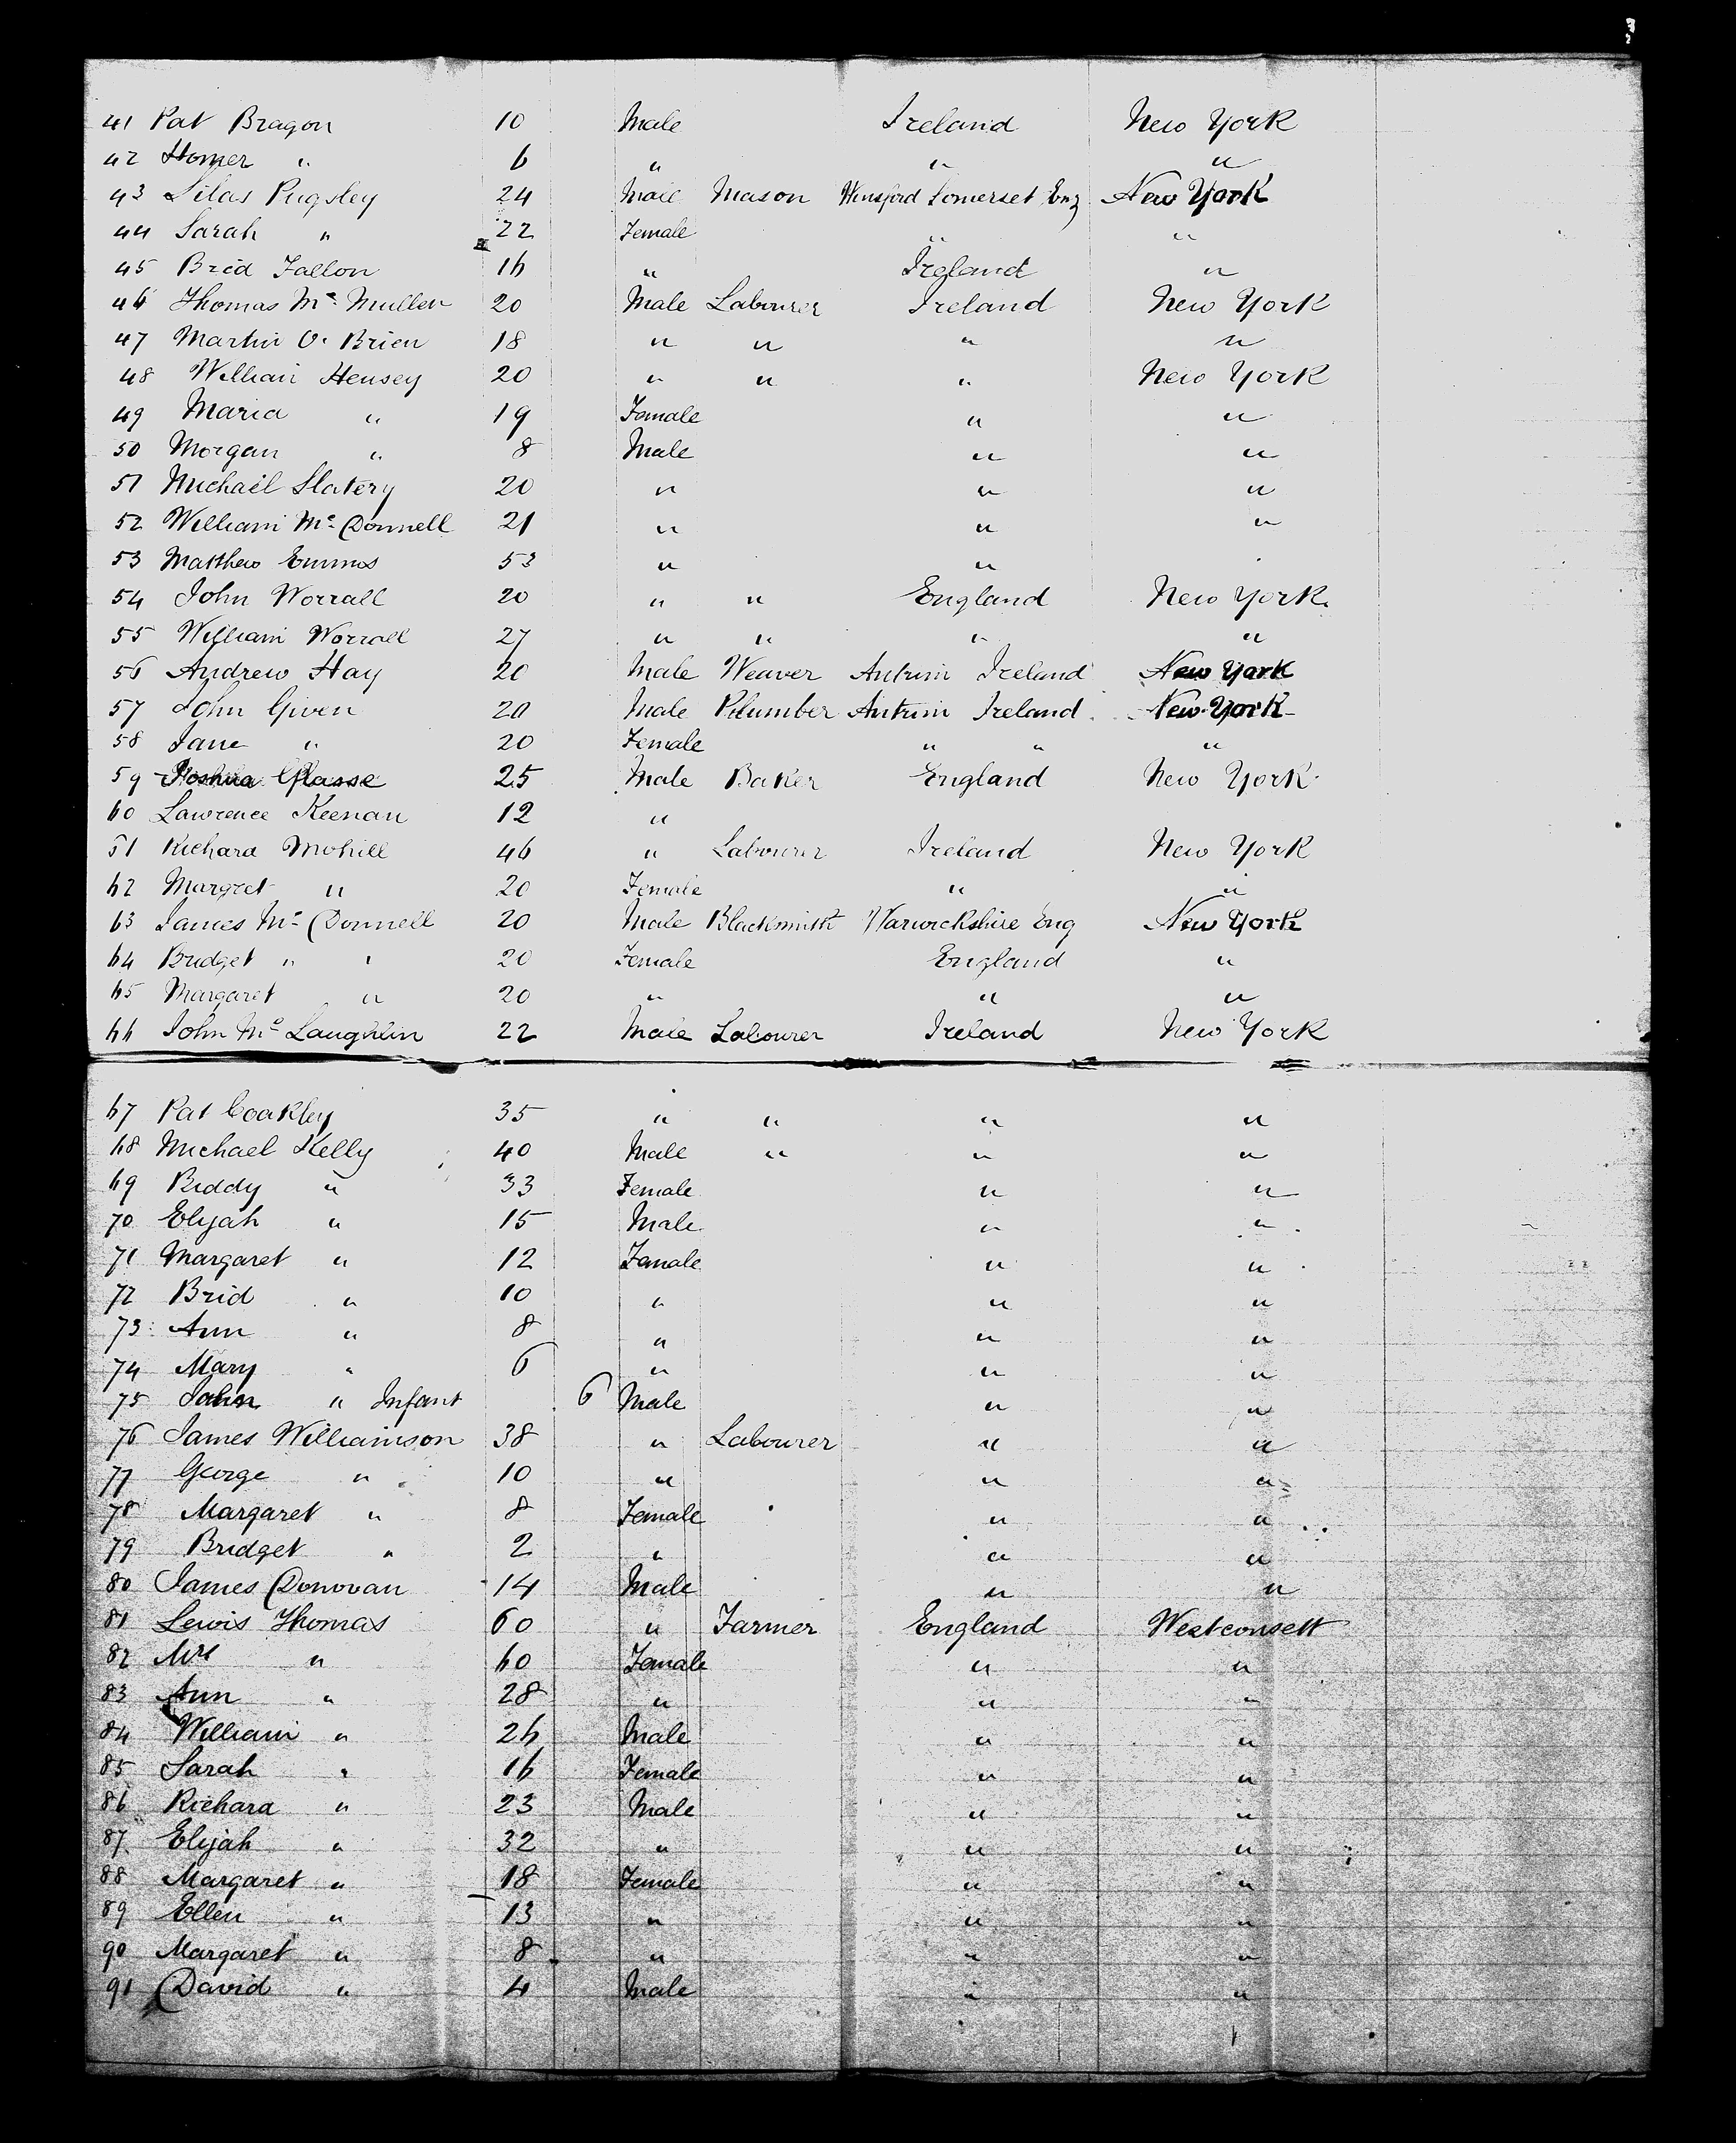 41 Pat Bragon 10 Male Ireland New York
42 Homer " 6 " " "
43 Silas Pugsley 24 Male Mason Winsford Somerset Eng New York
44 Sarah " 22 Female " "
45 Brid Fallon 16 " Ireland "
46 Thomas Mc Mullen 20 Male Labourer Ireland New York
47 Martin O. Brien 18 " " " "
48 William Hensey 20 " " " New York
49 Maria " 19 Female " "
50 Morgan " 8 Male " "
51 Michael Slatery 20 " " "
52 William Mc Donnell 21 " " "
53 Matthew Emmos 53 " "
54 John Worrall 20 " " England New York.
55 William Worrall 27 " " " "
56 Andrew Hay 20 Male Weaver Antrim Ireland New York
57 John Given 20 Male Plumber Antrim Ireland New York
58 Jane " 20 Female " " "
59 Joshua Glasse 25 Male Baker England New York
60 Lawrence Keenan 12 "
61 Richard Mohill 46 " Labourer Ireland New York
62 Margret " 20 Female " "
63 James Mc Donnell 20 Male Blacksmith Warwickshire Eng New York
64 Bridget " " 20 Female England "
65 Margaret " 20 " " "
66 John Mc Laughlin 22 Male Labourer Ireland New York
67 Pat Coakley 35 " " " "
68 Michael Kelly 40 Male " " "
69 Biddy " 33 Female " "
70 Elijah " 15 Male " "
71 Margaret " 12 Female " "
72 Brid " 10 " " "
73 Ann " 8 " " "
74 Mary " 6 " " "
75 John " Infant 6 Male " "
76 James Williamson 38 " Labourer " "
77 George " 10 " " "
78 Margaret " 8 Female " "
79 Bridget " 2 " " "
80 James Donovan 14 Male " "
81 Lewis Thomas 60 " Farmer England Westconsett
82 Mrs " 60 Female " "
83 Ann " 28 " " "
84 William " 26 Male " "
85 Sarah " 16 Female " "
86 Richard " 23 Male " "
87 Elijah " 32 " " "
88 Margaret " 18 Female " "
89 Ellen " 13 " " "
90 Margaret " 8 " " "
91 David " 4 Male " "